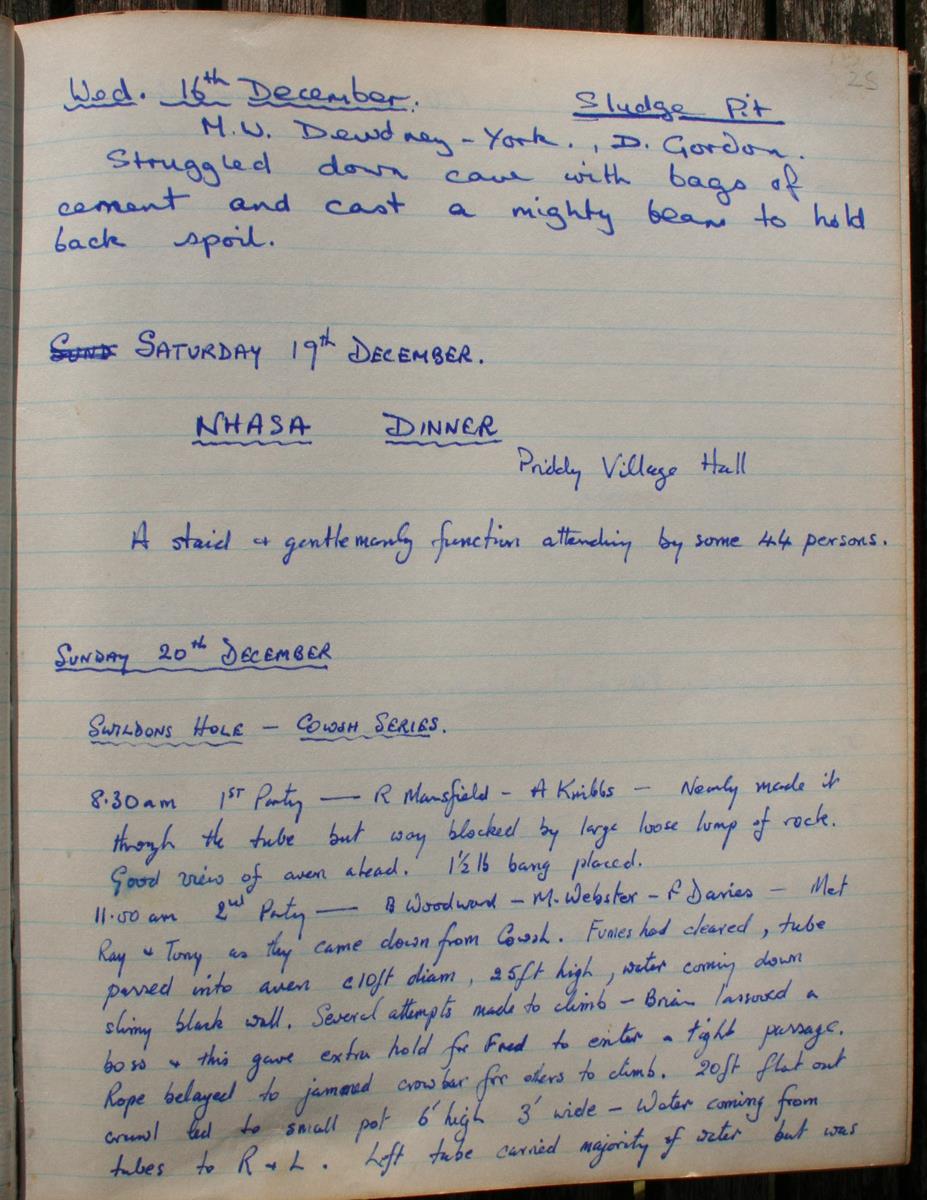 25
Wed. 16th December. Sludge Pit
M.W. Dewdney-York., D. Gordon.
Struggled down cave with bags of
cement and cast a mighty beam to hold
back spoil.
Sund SATURDAY 19th DECEMBER.
NHASA DINNER
Priddy Village Hall
A staid & gentlemanly function attending by some 44 persons.
SUNDAY 20th DECEMBER
SWILDONS HOLE – COWSH SERIES.
8.30am 1ST Party — R Mansfield – A Knibbs – Nearly made it
through the tube but way blocked by large loose lump of rock.
Good view of aven ahead. 1½ lb bang placed.
11.00 am 2nd Party — B Woodward – M. Webster – F Davies – Met
Ray & Tony as they came down from Cowsh. Fumes had cleared, tube
passed into aven c10ft diam, 25ft high, water coming down
slimy black wall. Several attempts made to climb – Brian lassoed a
boss & this gave extra hold for Fred to enter a tight passage.
Rope belayed to jammed crowbar for others to climb. 20ft flat out
crawl led to small pot 6' high 3' wide – Water coming from
tubes to R & L. Left tube carried majority of water but was